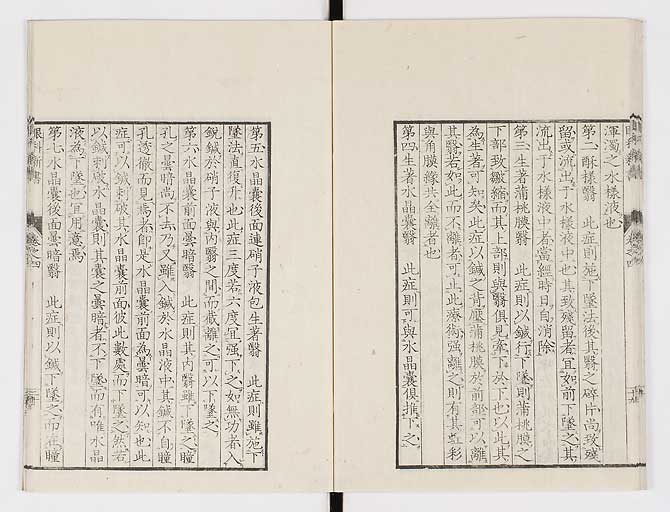 渾濁之水樣液也
第二酥樣翳 此症則施下墜法後其翳之碎片尚致殘
留或流出于水樣液中也其致殘留者宜如前下墜之其
流出于水樣液中者當經時日自消除
第三生著蒲桃膜翳 此症則以鍼行下墜則蒲桃膜之
下部致皺縮而其上部則與翳俱見牽下於下也以此其
為生著可知矣此症以鍼之背壓蒲桃膜於前部可以離
其翳若如此而不離者可止此療術強離之則有其虹彩
與角膜緣共全離者也
第四生著水晶囊翳 此症則可與水晶囊俱推下之
第五水晶囊後面連硝子液包生著翳 此症則雖施下
墜法直復升也此症三度若六度宜强下之如無功者入
銳鍼於硝子液與内翳之間而截離之可以下墜之
第六水晶囊前面曇暗翳 此症則其内翳雖下墜之瞳
孔之曇暗尚不去乃又雖入鍼於水晶液中其鍼不自瞳
孔透徹而見焉者即是水晶囊前面為曇暗可以知也此
症可以鍼刺破其水晶囊前面彼此數處而下墜之然若
以鍼刺破水晶囊則其囊之曇暗者不下墜而有唯水晶
液為下墜也宜用意焉
第七水晶囊後面曇暗翳 此症則以鍼下墜之而在瞳
眼科新書
卷之四